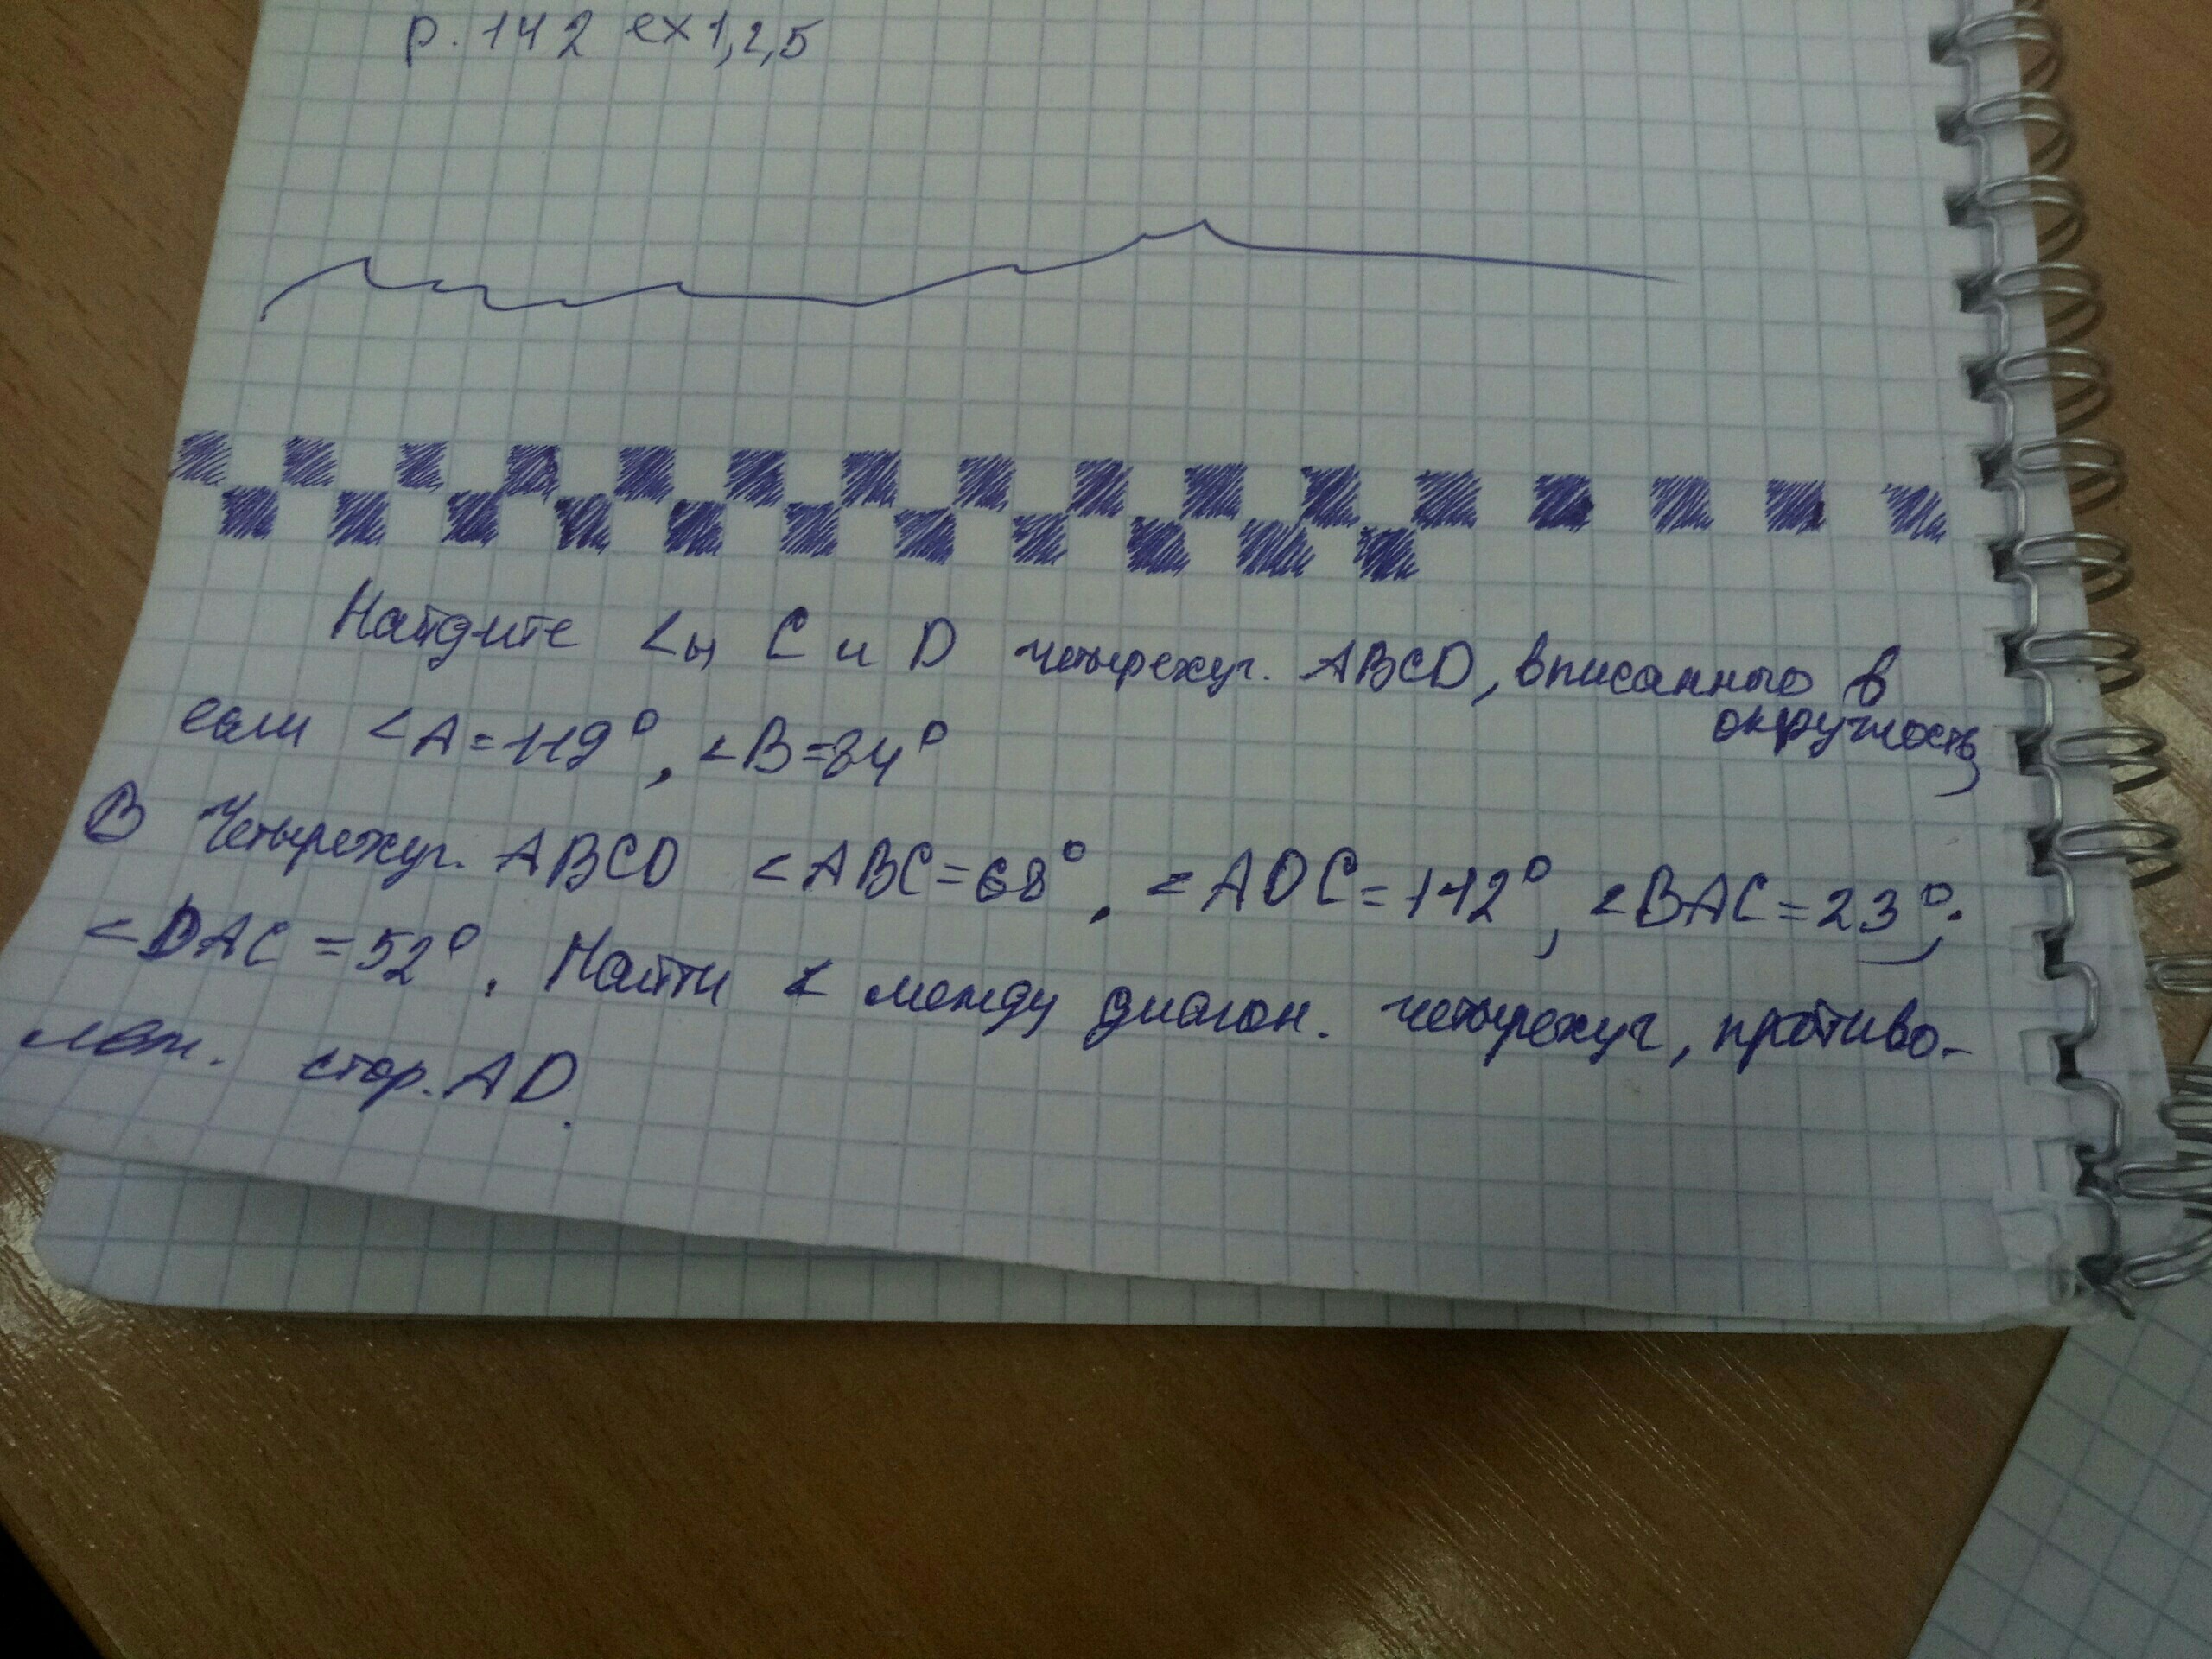 p. 142 ex 1,2,5
Найдите <ы C и D четырехуг. ABCD, вписанного в
окружность,
если <A=112°, <B=84°
В четырехуг. ABCD <ABC=68°, <ADC=112°, <BAC=23°;
<DAC=52°. Найти < между диагон. четырехуг, противо-
леж. стор. AD.